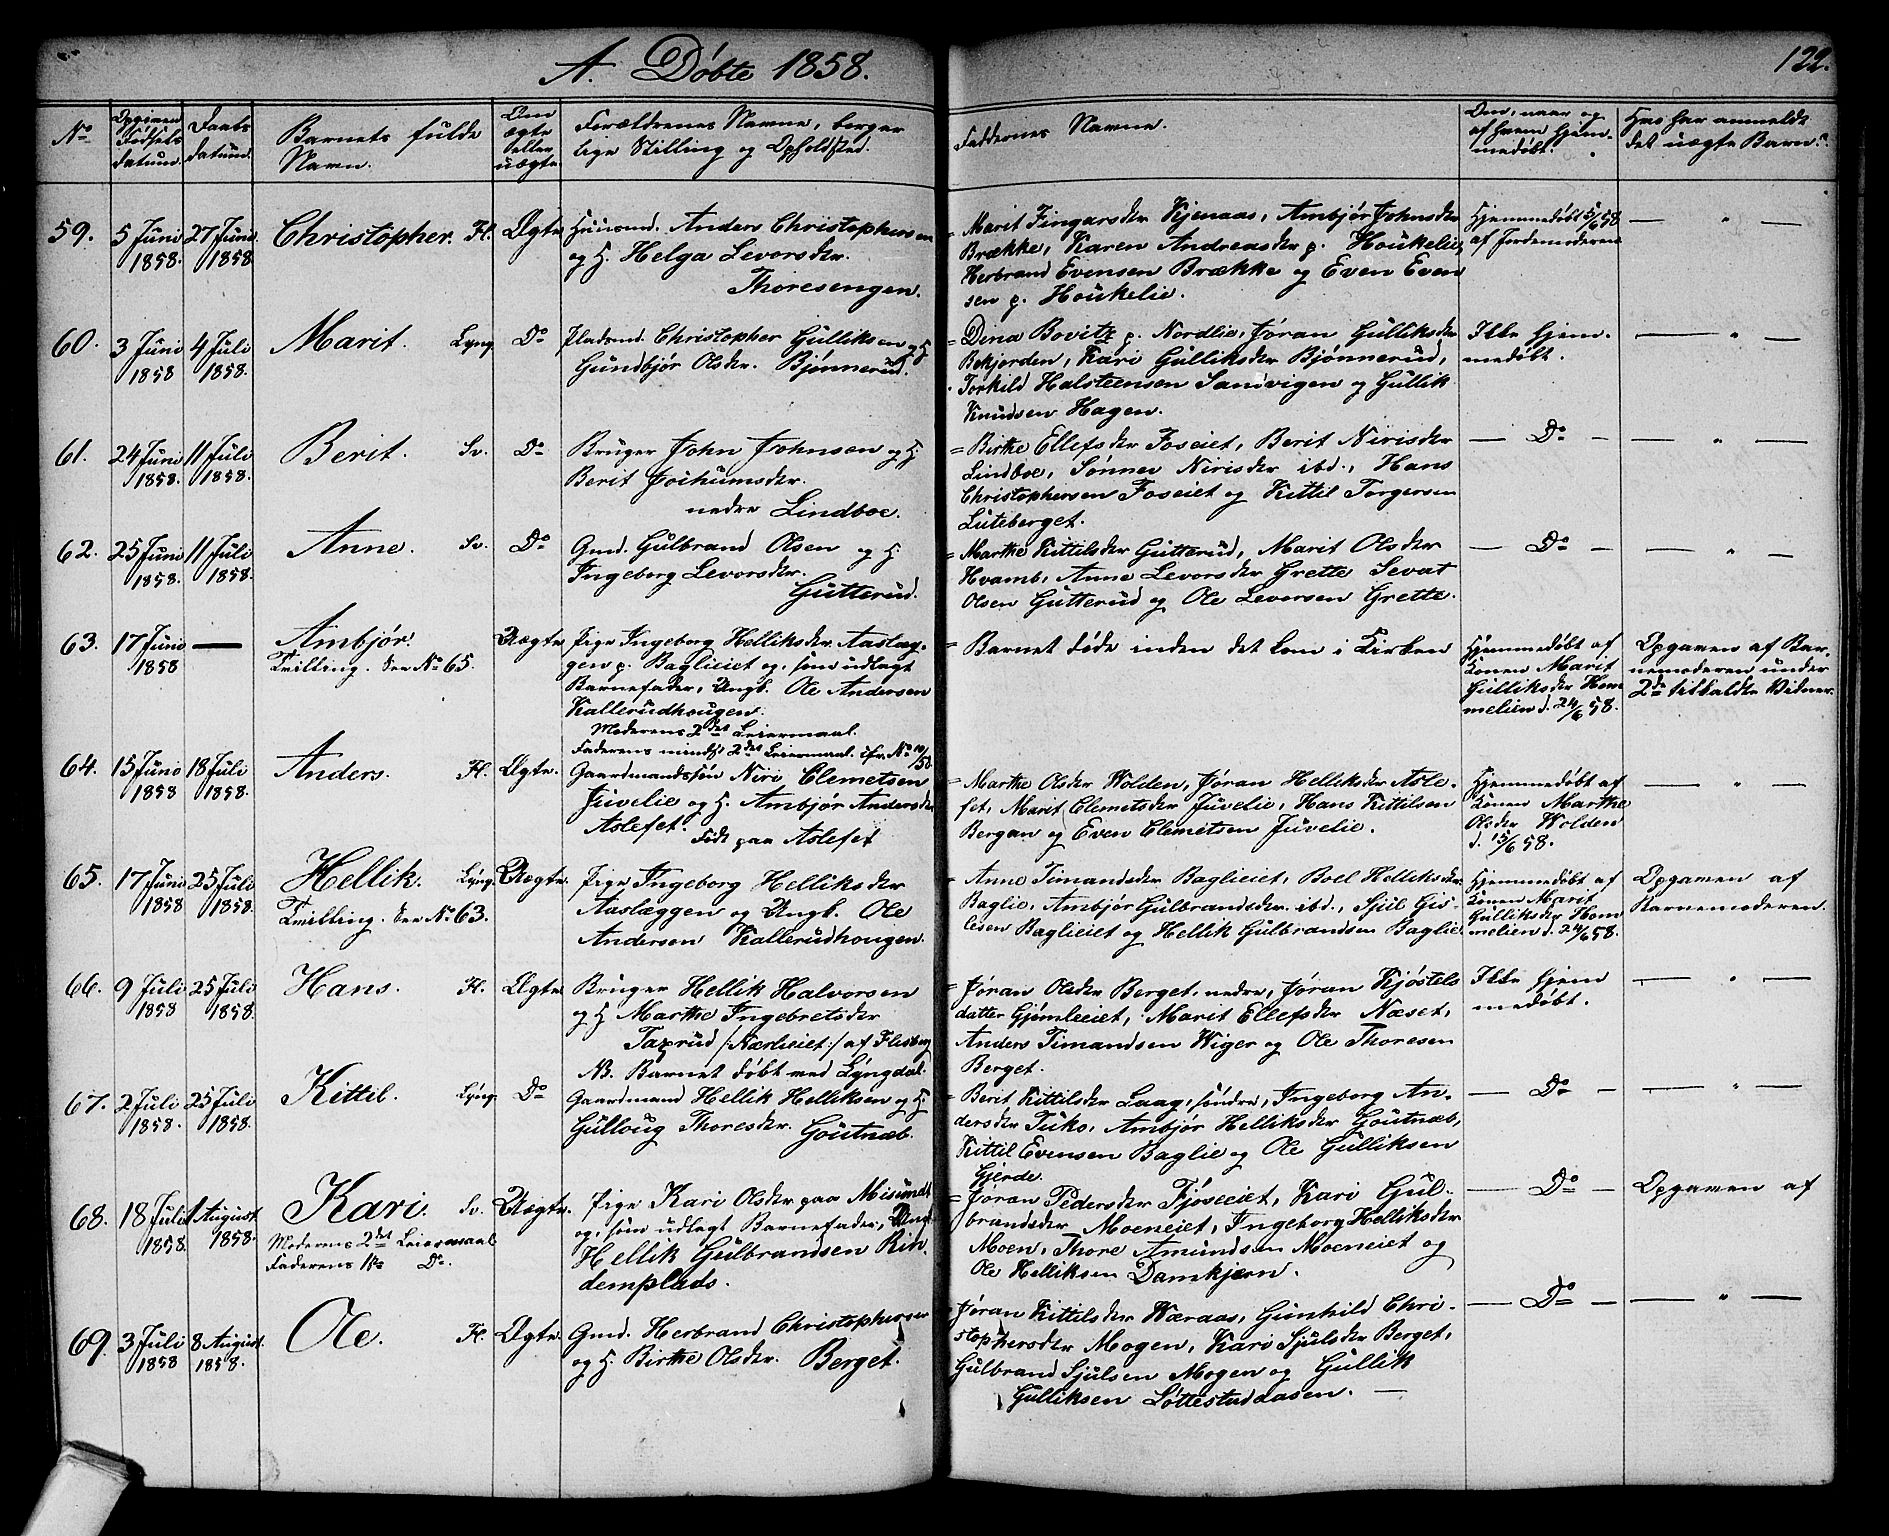 A. Døbte 1858.
122.
No
Opgiven Fødsels datum.
Daabs datum.
Barnets fulde Navn.
Om ægte eller uægte
Forældrenes Navne, borgerlige Stilling og Opholdsted.
Faddernes Navne.
Om, naar og af hvem hjemmedøbt.
Hvo har anmeldt det uægte Barn?
59. 5 Juni 1858. 27 Juni 1858 Christopher. Fl. Ægte
Huusmd. Anders Christophersen
og H. Helga Levorsdr.
Thoresengen.
= Marit Fingarsdr Kjenaas, Ambjør Johnsdr
Brække, Karen Andreasdr p. Houkelie,
Herbrand Evensen Brække og Even Even
sen p. Houkelie.
Hjemmedøbt 5/6 58
af Jordemoderen
— " —
60. 3 Juni 1858 4 Juli 1858. Marit. Lyng. Do
Pladsmd. Christopher Gulliksen og H
Gundbjør Olsdr. Bjønnerud.
= Dina Bovitz p. Nordlie, Jøran Gulliksdr
Bekjorden, Kari Gulliksdr Bjønnerud,
Torkild Halsteensen Sandvigen og Gullik
Knudsen Hagen.
Ikke hjem-
medøbt.
— " —
61. 24 Juni 1858. 11 Juli 1858. Berit. Sv. Do
Bruger John Johnsen og H.
Berit Jochumsdr.
nedre Lindboe.
= Birthe Ellefsdr Foseiet, Berit Nirisdr
Lindboe, Sønnev Nirisdr ibd., Hans
Christophersen Foseiet og Kittil Torgersen
Luteberget.
— Do —
— " —
62. 25 Juni 1858. 11 Juli 1858. Anne. Sv. Do
Gmd. Gulbrand Olsen og H.
Ingeborg Levorsdr.
Gutterud.
= Marthe Kittilsdr Gutterud, Marit Olsdr
Hvamb, Anne Levorsdr Grette Sevat
Olsen Gutterud og Ole Levorsen Grette.
— Do —
— " —
63. 17 Juni 1858 — Ambjør. Uægte
Tvilling. See No 65.
Pige Ingeborg Helliksdr Aaslæg-
gen p. Baglieiet og, som udlagt
Barnefader, Ungk. Ole Andersen
Kallerudhougen.
Moderens 2det Leiermaal.
Faderens mindst 2det Leiermaal. cfr. No 10/58
= Barnet døde inden det kom i Kirken
Hjemmedøbt af
Konen Marit
Gulliksdr Hom
melien d. 24/6 58.
Opgaven af Bar-
nemoderen under
2de tilkaldte Vidner.
64. 15 Juni 1858 18 Juli 1858. Anders. Fl. Ægte.
Gaardmandssøn Niri Clemetsen
Juvelie og H. Ambjør Andersdr
Aslefet.
Født paa Aslefet
= Marthe Olsdr Wolden, Jøran Helliksdr Asle-
fet, Marit Clemetsdr Juvelie, Hans Kittilsen
Bergan og Even Clemetsen Juvelie.
Hjemmedøbt af
Konen Marthe
Olsdr Wolden
d. 15/6 58.
— " —
65. 17 Juni 1858 25 Juli 1858. Hellik. Lyng. Uægte.
Tvilling. See No 63.
Pige Ingeborg Helliksdr
Aaslæggen og Ungk. Ole
Andersen Kallerudhougen.
= Anne Timandsdr Baglieiet, Boel Helliksdr
Baglie, Ambjør Gulbrandsdr. ibd., Sjul Gis-
lesen Baglieiet og Hellik Gulbrandsen Baglie.
Hjemmedøbt af
Konen Marit
Gulliksdr Hom
melien d. 24/6 58.
Opgaven af
Barnemoderen.
66. 9 Juli 1858 25 Juli 1858. Hans. Fl. Ægte
Bruger Hellik Halvorsen
og H Marthe Ingebretsdr
Taxrud /:Nærlieiet:/ af Flesberg
NB. Barnet døbt ved Lyngdal.
= Jøran Olsdr Berget, nedre, Jøran Kjøstels
datter Gjømleeiet, Marit Ellefsdr Næset,
Anders Timandsen Wiger og Ole Thoresen
Berget.
Ikke hjem
medøbt.
— " —
67. 2 Juli 1858. 25 Juli 1858. Kittil. Lyng. Do
Gaardmand Hellik Helliksen og H
Gulloug Thoresdr. Goutnæb.
= Berit Kittilsdr Laag, søndre, Ingeborg An-
dersdr Tuko, Ambjør Helliksdr Goutnæb,
Kittil Evensen Baglie og Ole Gulliksen
Gjerde.
— Do —
— " —
68. 18 Juli 1858. 1 August 1858. Kari. Sv. Uægte.
Moderens 2det Leiermaal
Faderens 1ste Do.
Pige Kari Olsdr paa Misund
og, som udlagt Barnefader, Ungk
Hellik Gulbrandsen Rin-
demplads.
= Jøran Pedersdr Fjøseeiet, Kari Gul-
brandsdr Moeneiet, Ingeborg Helliksdr
Moen, Thore Amundsen Moeneiet og
Ole Helliksen Damkjærn.
— Do —
Opgaven af
69. 3 Juli 1858 8 August 1858. Ole. Fl. Ægte.
Gmd. Herbrand Christophersen
og H. Birthe Olsdr. Berget.
= Jøran Kittilsdr Wæraas, Gunhild Chri-
stophersdr Mogen, Kari Sjulsdr Berget,
Gulbrand Sjulsen Mogen og Gullik
Gulliksen Løttestudaasen. —
— Do —
— " —